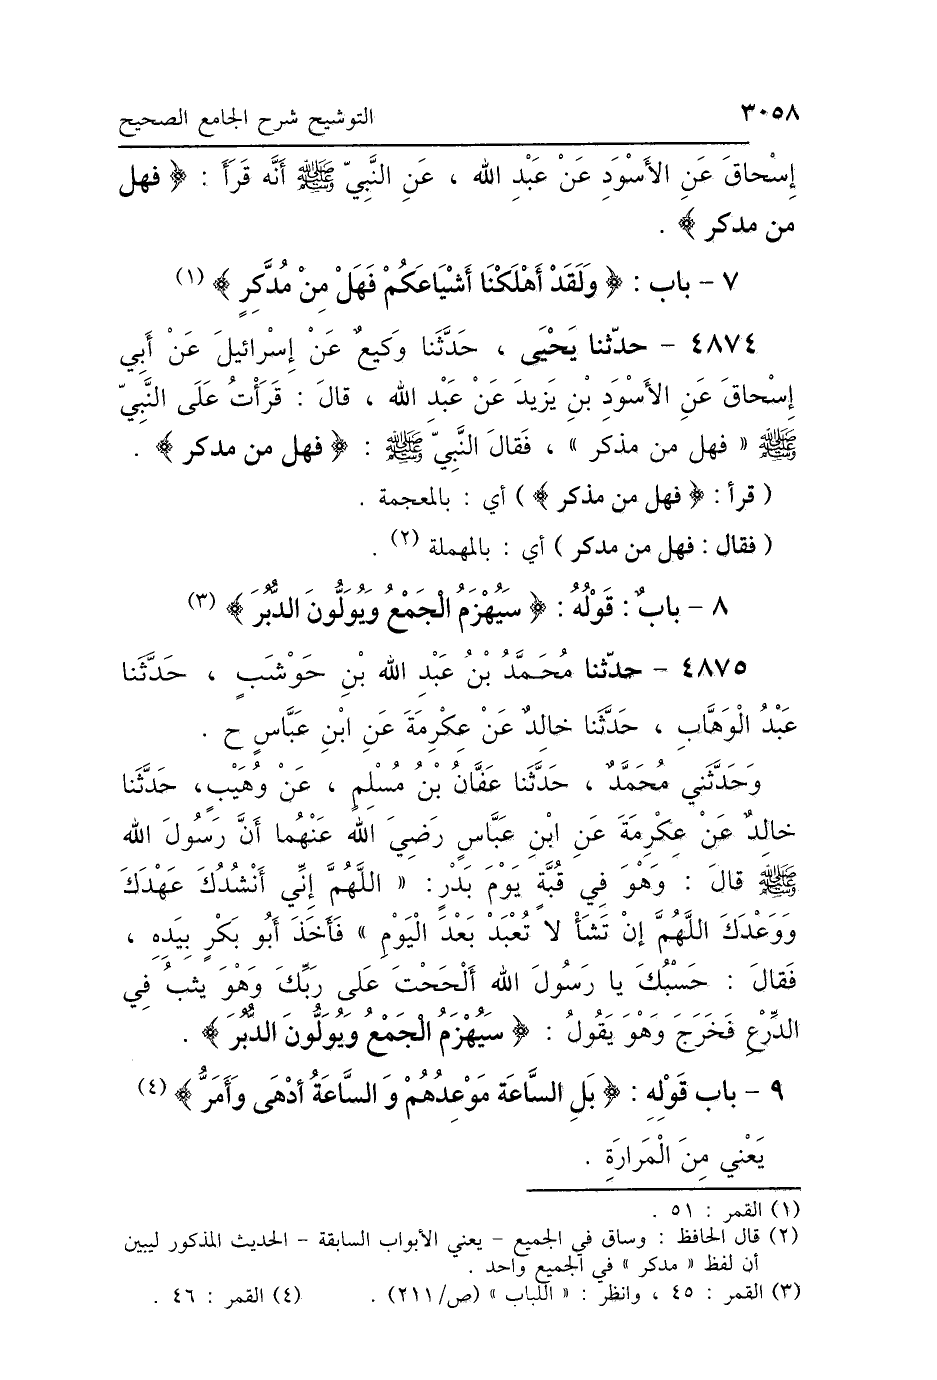 ٣٠٥٨ التوشيح شرح الجامع الصحيح
إِسْحاقَ عَنِ الأَسْوَدِ عَنْ عَبْدِ الله ، عَنِ النَّبِيّ ﷺ أَنَّه قَرَأَ : ﴿ فهل
من مدكر ﴾ .
٧ - باب : ﴿ وَلَقَدْ أَهْلَكْنَا أَشْيَاعَكُمْ فَهَلْ مِنْ مُدَّكِرٍ ﴾ (١)
٤٨٧٤ - حدّثنا يَحْيَى ، حَدَّثَنا وَكيعٌ عَنْ إِسْرائيلَ عَنْ أَبي
إِسْحاقَ عَنِ الأَسْوَدِ بْنِ يَزيدَ عَنْ عَبْدِ الله ، قالَ : قَرَأْتُ عَلَى النَّبِيّ
ﷺ « فهل من مذكر » ، فَقالَ النَّبِيّ ﷺ : ﴿ فهل من مدكر ﴾ .
( قرأ : ﴿ فهل من مذكر ﴾ ) أي : بالمعجمة .
( فقال : فهل من مدكر ) أي : بالمهملة (٢) .
٨ - بابٌ : قَوْلُهُ : ﴿ سَيُهْزَمُ الْجَمْعُ وَيُوَلُّونَ الدُّبُرَ ﴾ (٣)
٤٨٧٥ - حدّثنا مُحَمَّدُ بْنُ عَبْدِ الله بْنِ حَوْشَبٍ ، حَدَّثَنا
عَبْدُ الْوَهَّابِ ، حَدَّثَنا خالِدٌ عَنْ عِكْرِمَةَ عَنِ ابْنِ عَبَّاسٍ ح .
وَحَدَّثَني مُحَمَّدٌ ، حَدَّثَنا عَفَّانُ بْنُ مُسْلِمٍ ، عَنْ وُهَيْبٍ، حَدَّثَنا
خالِدٌ عَنْ عِكْرِمَةَ عَنِ ابْنِ عَبَّاسٍ رَضِيَ الله عَنْهُما أَنَّ رَسُولَ الله
ﷺ قالَ : وَهْوَ فِي قُبَّةٍ يَوْمَ بَدْرٍ : « اللَّهُمَّ إِنِّي أَنْشُدُكَ عَهْدَكَ
وَوَعْدَكَ اللَّهُمَّ إِنْ تَشَأْ لا تُعْبَدْ بَعْدَ الْيَوْمِ » فَأَخَذَ أَبُو بَكْرٍ بِيَدِهِ ،
فَقالَ : حَسْبُكَ يا رَسُولَ الله أَلْحَحْتَ عَلى رَبِّكَ وَهْوَ يثبُ فِي
الدِّرْعِ فَخَرَجَ وَهْوَ يَقُولُ : ﴿ سَيُهْزَمُ الْجَمْعُ وَيُوَلُّونَ الدُّبُرَ ﴾ .
٩ - باب قَوْلِهِ : ﴿ بَلِ السَّاعَة مَوْعِدُهُمْ وَ السَّاعَةُ أَدْهَى وَأَمَرُّ ﴾ (٤)
يَعْني مِنَ الْمَرارَةِ .
(١) القمر : ٥١ .
(٢) قال الحافظ : وساق في الجميع - يعني الأبواب السابقة - الحديث المذكور ليبين
أن لفظ « مدكر » في الجميع واحد .
(٣) القمر : ٤٥ ، وانظر : « اللباب » (ص/٢١١) . (٤) القمر : ٤٦ .